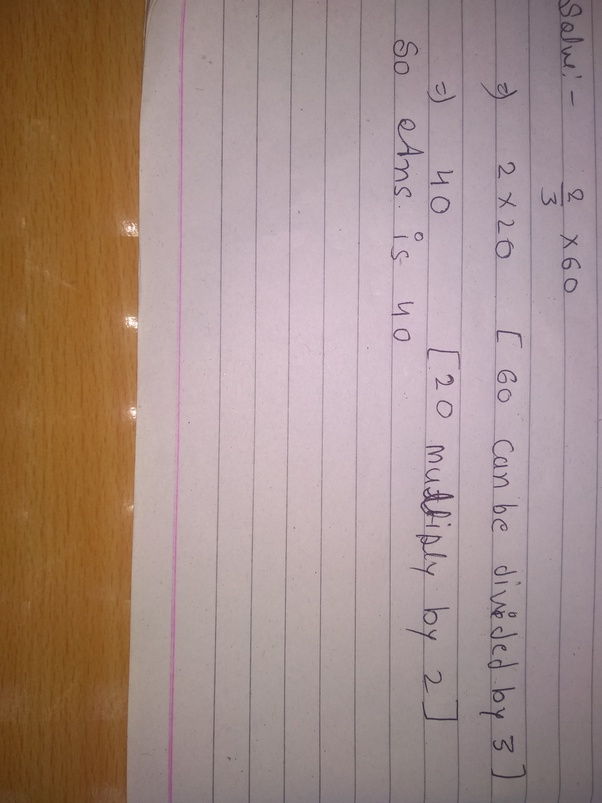 Solve:-
2/3 ×60
⇒ 2×20 [60 can be divided by 3]
⇒ 40 [20 multiply by 2]
So Ans. is 40